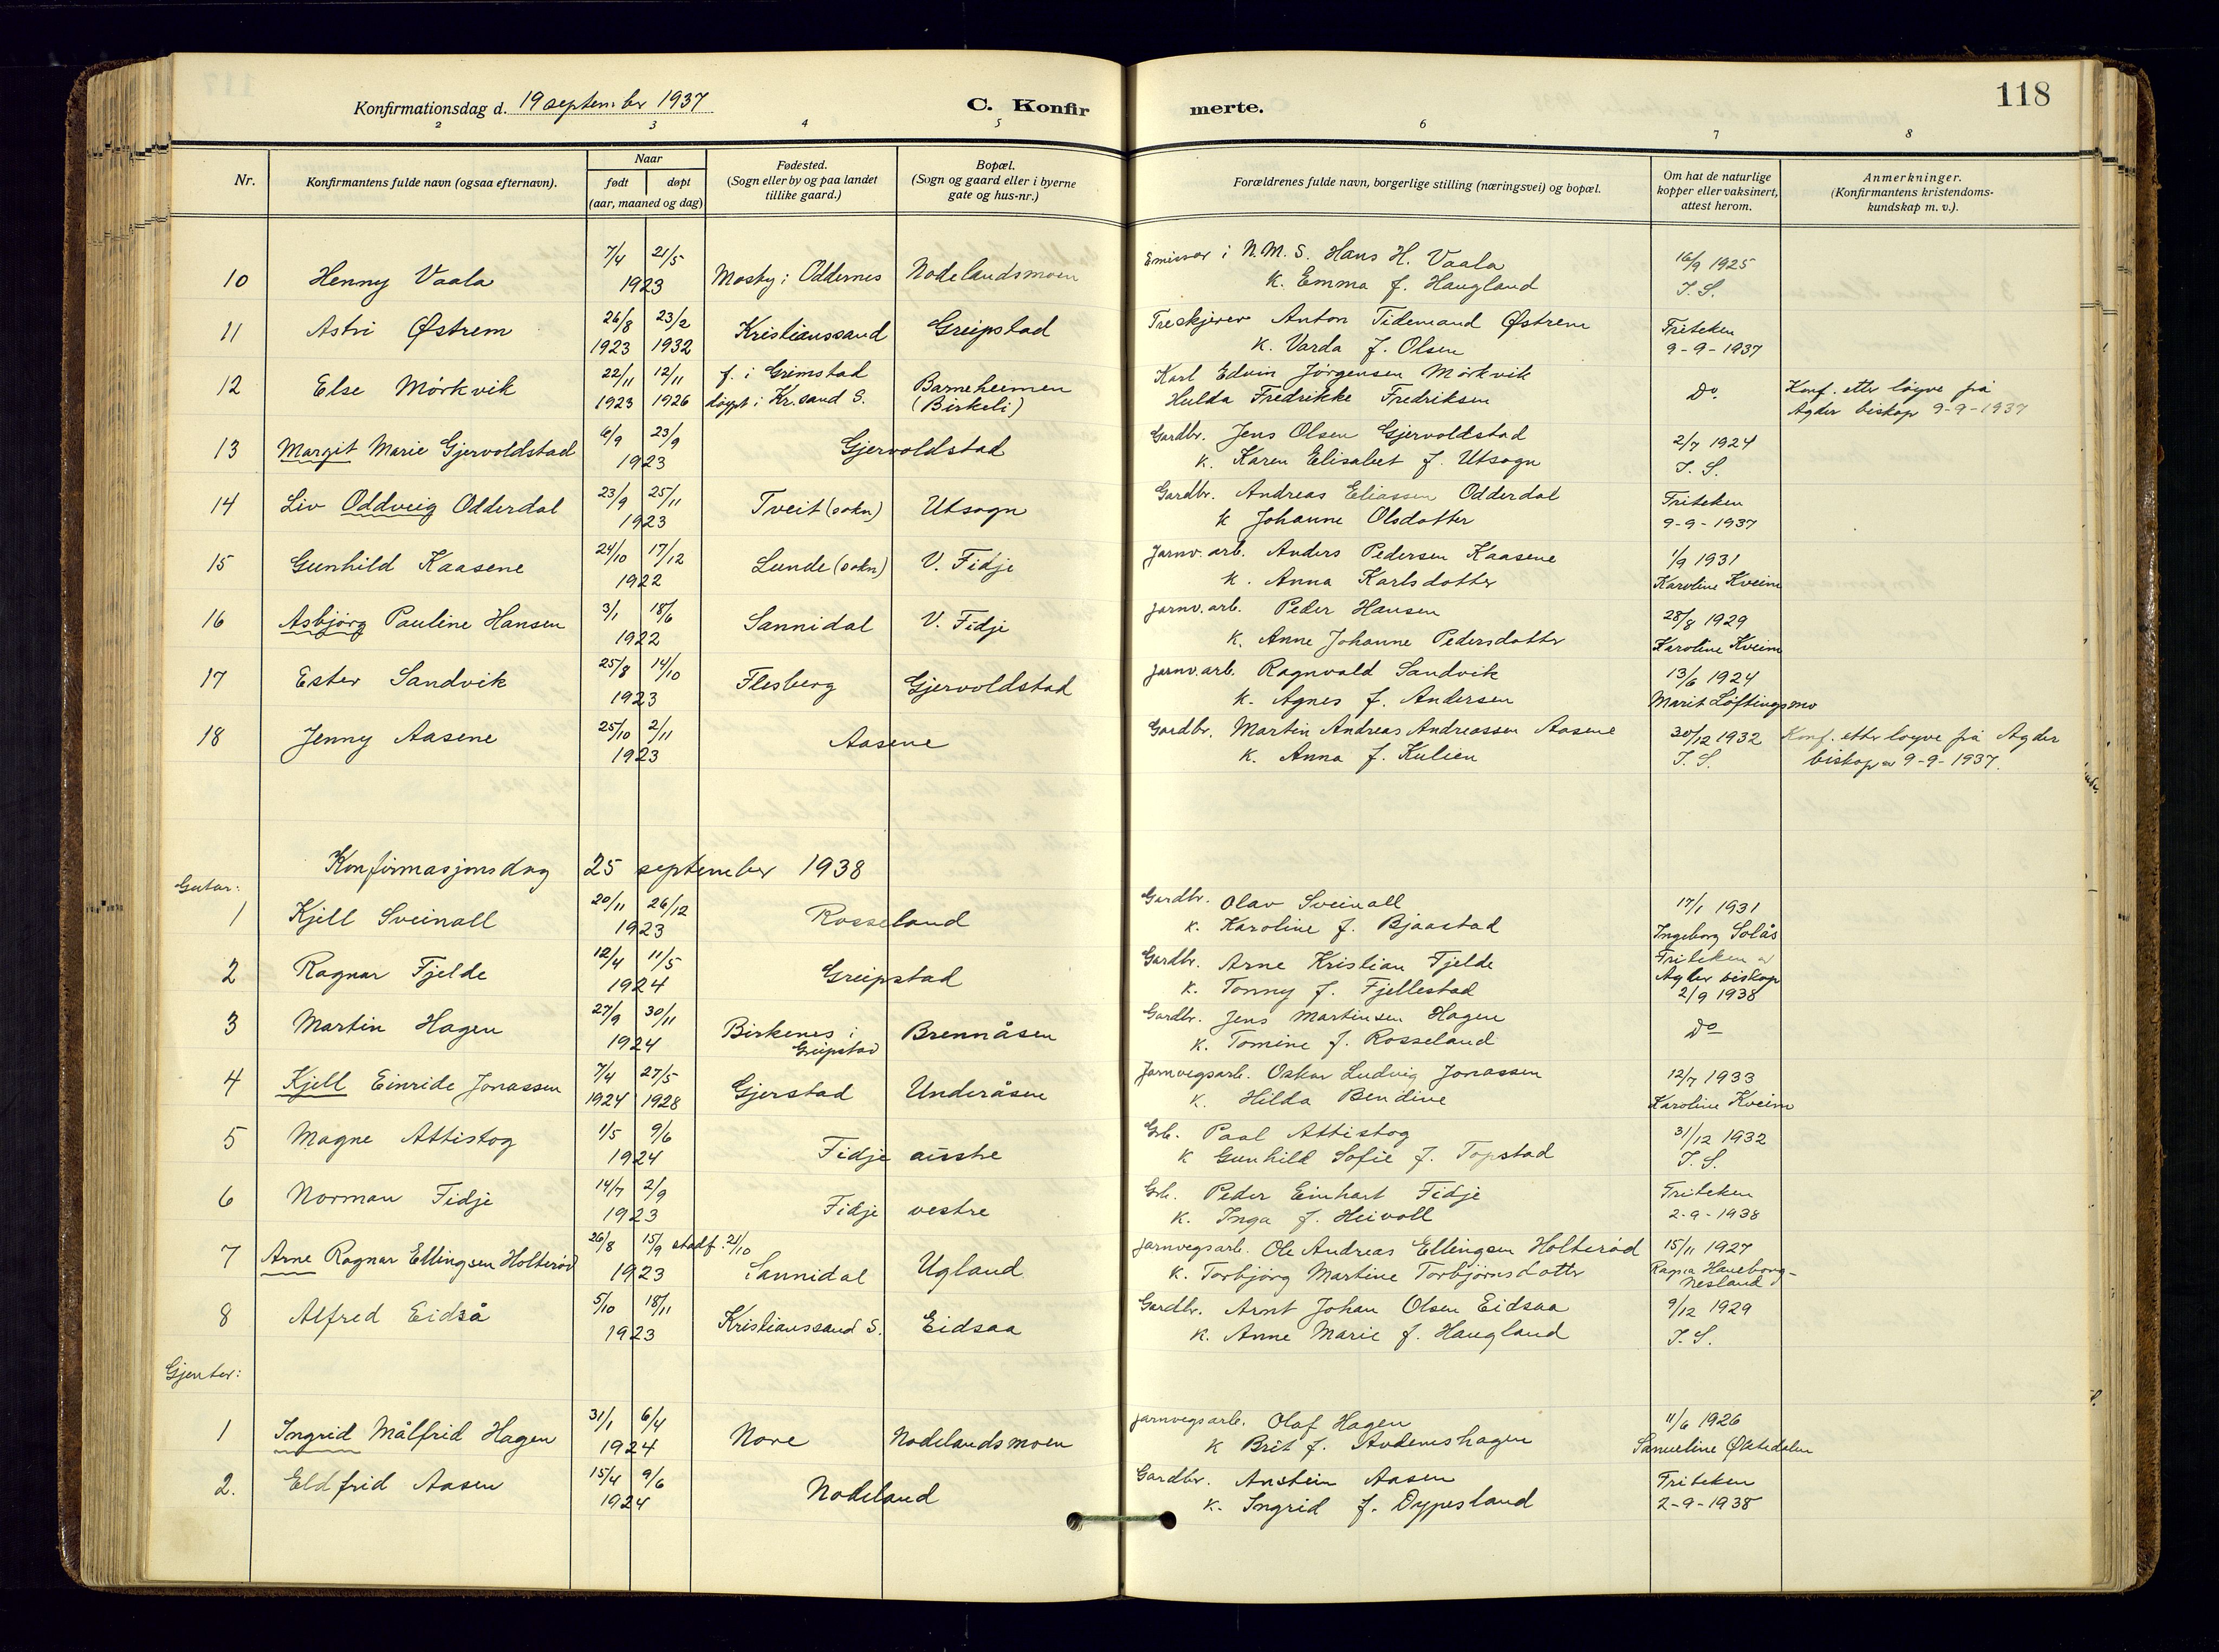 118
Konfirmationsdag d. 19 september 1937 C. Konfir merte.
2 3 4 5 6 7 8
Nr. Konfirmantens fulde navn (ogsaa efternavn). Naar født døpt (aar, maaned og dag) Fødested. (Sogn eller by og paa landet tillike gaard.) Bopæl. (Sogn og gaard eller i byerne gate og hus-nr.) Forældrenes fulde navn, borgerlige stilling (næringsvei) og bopæl. Om hat de naturlige kopper eller vaksinert, attest herom. Anmerkninger. (Konfirmantens kristendoms-kundskap m. v.).
10 Henny Vaala 7/4 21/5 1923 Mosby i Oddernes Nodelandsmoen Emissær i N.M.S. Hans H. Vaala 16/9 1925
K. Emma f. Haugland I. S.
11 Astri Østrem 26/8 1923 23/2 1932 Kristianssand Greipstad Treskjerer Anton Tidemand Østrem Friteken
K. Varda f. Olsen 9-9-1937
12 Else Mörkvik 22/11 1923 12/11 1926 f. i Grimstad døypt i Kr.sand S. Barneheimen (Birkeli) Karl Edvin Jörgensen Mörkvik Do. Konf. etter løyve frå
Hulda Fredrikke Fredriksen Agder biskop 9-9-1937
13 Margit Marie Gjervoldstad 6/9 23/9 1923 Gjervoldstad Gardbr. Jens Olsen Gjervoldstad 2/7 1924
K. Karen Elisabet f. Utsogn I. S.
14 Liv Oddveig Odderdal 23/9 25/11 1923 Tveit (sokn) Utsogn Gardbr. Andreas Eliassen Odderdal Friteken
K Johanne Olsdotter 9-9-1937
15 Gunhild Kaasene 24/10 17/12 1922 Lunde (sokn) V. Fidje Jarnv. arb. Anders Pedersen Kaasene 1/9 1931
K. Anna Karlsdotter Karoline Kveim
16 Asbjörg Pauline Hansen 3/1 18/6 1922 Sannidal V. Fidje jarnv. arb. Peder Hansen 28/8 1929
K. Anne Johanne Pedersdotter Karoline Kveim
17 Ester Sandvik 25/8 14/10 1923 Flesberg Gjervoldstad jarnv.arb. Ragnvald Sandvik 13/6 1924
K. Agnes f. Andersen Marit Löftingsmo
18 Jenny Aasene 25/10 2/11 1923 Aasene Gardbr. Martin Andreas Andreassen Aasene 30/12 1932 Konf. etter løyve frå Agder
K. Anna f. Kulien I. S. biskop 9-9-1937.
Konfirmasjonsdag 25 september 1938
Gutar:
1 Kjell Sveinall 20/11 26/12 1923 Rosseland Gardbr. Olav Sveinall 17/1 1931
K. Karoline f. Bjaastad Ingeborg Solås
2 Ragnar Fjelde 12/4 11/5 1924 Greipstad Gardbr. Arne Kristian Fjelde Friteken av
K. Tonny f. Fjellestad Agder biskop 2/9 1938
3 Martin Hagen 27/9 30/11 1924 Birkenes i Greipstad Brennåsen Gardbr. Jens Martinsen Hagen Do
K. Tomine f. Rosseland
4 Kjell Einride Jonassen 7/4 1924 27/5 1928 Gjerstad Underåsen Jarnvegsarb. Oskar Ludvig Jonassen 12/7 1933
K. Hilda Bendine Karoline Kveim
5 Magne Attistog 1/5 9/6 1924 Fidje austre Grb. Paal Attistog 31/12 1932
K Gunhild Sofie f. Topstad I. S.
6 Norman Fidje 14/7 2/9 1923 Fidje vestre Grb. Peder Einhart Fidje Friteken
K. Inga f. Heivoll 2-9-1938
7 Arne Ragnar Ellingsen Holteröd 26/8 15/9 stadf. 21/10 1923 Sannidal Ugland jarnvegsarb. Ole Andreas Ellingsen Holteröd 15/11 1927
K. Torbjörg Martine Torbjörnsdotter Haneborg-Nesland
8 Alfred Eidså 5/10 18/11 1923 Kristianssand S. Eidsaa Gardbr. Arnt Johan Olsen Eidsaa 9/12 1929
K. Anne Marie f. Haugland I. S.
Gjenter:
1 Ingrid Målfrid Hagen 31/1 6/4 1924 Nore Nodelandsmoen jarnvegsarb. Olaf Hagen 11/6 1926
K Brit f. Samueline
2. Eldfrid Aasen 15/4 9/6 1924 Nodeland Gardbr. Anstein Aasen Friteken
K. Ingrid f. Dypesland 2-9-1938